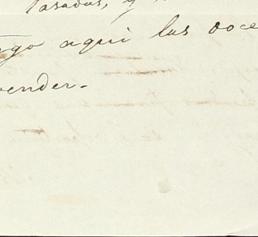 pasadas, y
tengo aqui las doce
vender.